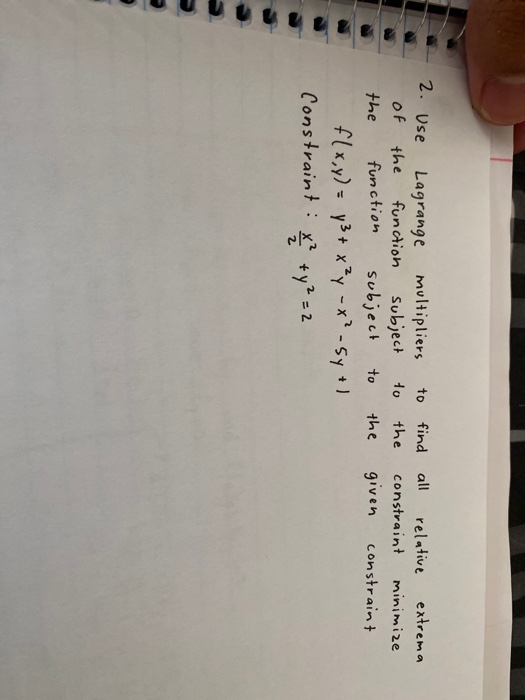 2. Use Lagrange multipliers to find all relative extrema
of the function subject to the constraint minimize
the function subject to the given constraint
f(x,y) = y³ + x²y - x² - 5y + 1
Constraint : x²/2 + y² = 2